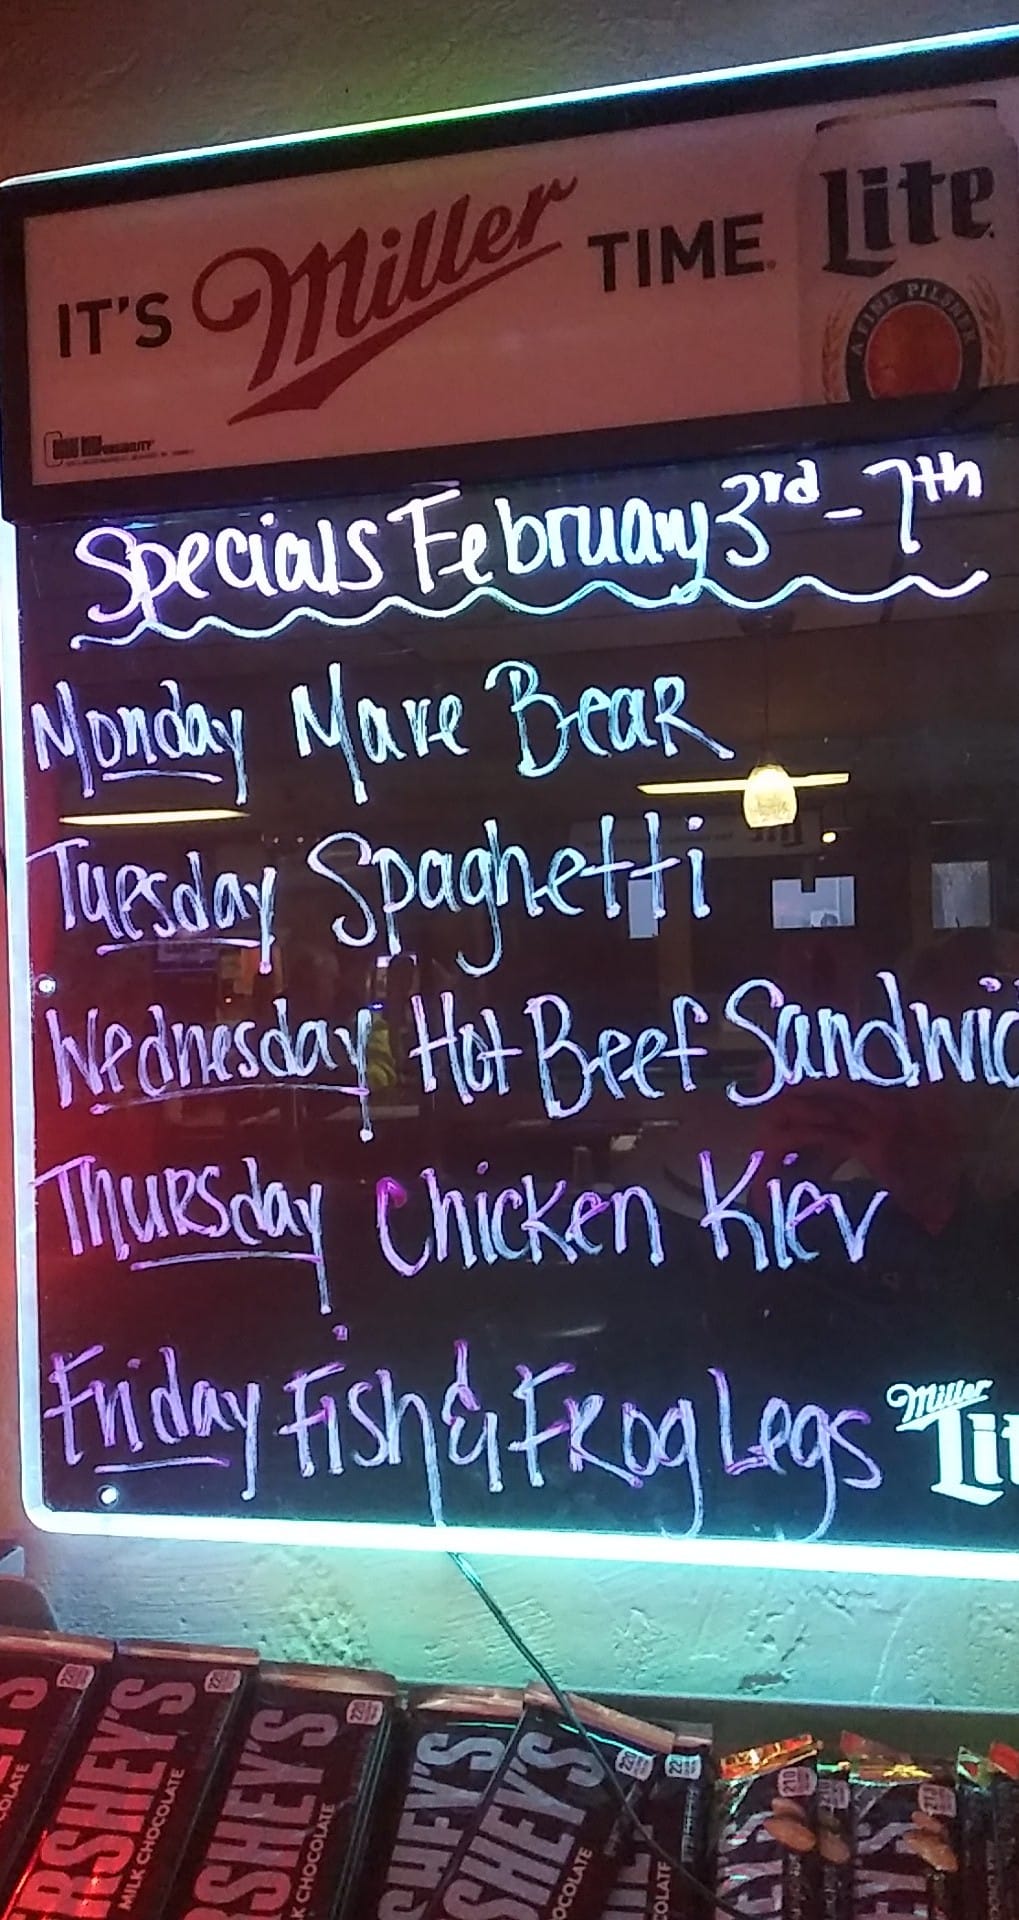 IT'S Miller TIME. Lite
A FINE PILSNER
Specials February 3rd - 7th
Monday Mave Bear
Tuesday Spaghetti
Wednesday Hot Beef Sandwic
Thursday Chicken Kiev
Friday Fish & Frog Legs
Miller
Lit
RSHEY'S
MILK CHOCOLATE
220
RSHEY'S
K CHOCOLATE
220
SHEY'S
SHEY'S
OCOLATE
220
210